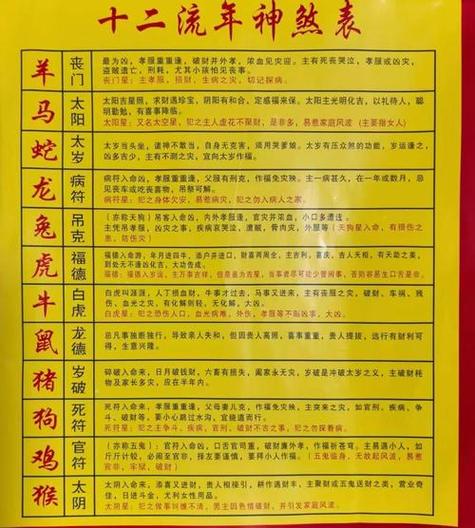 十二流年神煞表
羊
丧门
最为凶，孝服重重逢，破财并外孝，浓血见灾迎。主有死丧哭泣，孝服或凶灾，
盗贼遗亡，刑耗，尤其小孩怕见丧事。
丧门星：主孝服，损财，生病之灾，切记探病。
马
太阳
太阳吉星照，求财遇珍宝，阴阳和有合，定感福来保。太阳主光明化吉，以礼待人，聪
明勤勉，有喜事降临。
太阳星：又名太空星，犯之主人虚花不聚财，是非多，易惹家庭风波（主要指女人）
蛇
太岁
太岁当头坐，诸神不敢当，自身无克害，须用哭爹娘。太岁有压众煞的功能，岁运逢之，
凶多吉少，主有不测之灾，宜向太岁作福。
龙
病符
病符入命来，孝服重重逢，父服有刑克，作福免灾殃。主一病甚久，在一年或数月，忌
见丧车或吃丧喜物，吊祭可解。
病符星：犯之身体欠安，易惹病灾，犯之勿入病人之家。
兔
吊克
（亦称天狗）吊客入命凶，内外孝服逢，官灾并浓血，小口多遭迍。
主凭吊孝服，凶灾之事，疾病哀哭泣，遭贼，骨肉灾，外服等（天狗星入命，有损伤之
患，防伤灾）
虎
福德
福德入命游，年月进四牛，添户并进口，财喜两周全，主吉利，喜庆，吉人天相，有天助之美，
到处无不逢凶化吉，大功告成。
福德：福德入岁运，主万事吉祥，但是最为吉星，当事者尽可能少管闲事，否防容易生口舌是非。
牛
白虎
白虎叫涯涯，人丁损血财，牛事才过去，马事又进来，主有丧服之灾，破财，车祸，残
伤，血光之灾，有化解则轻，无化解，大凶。
白虎星：犯之恐伤人口，血光病难，外伤，孝服等不吉凶事，大凶。
鼠
龙德
忌凡事独断独行，导致亲人失和，但因贵人高照，喜事重重，贵人提拔，远行有财利可
得，生意兴隆。
猪
岁破
碎破入命来，日月破钱财，六畜有损失，阖家永天灾，岁破是冲破太岁之义，主破财耗
物及家长多灾，应在半年内。
狗
死符
死符入命来，孝服重重逢，父母妻儿克，作福免灾殃，主突来之灾，如官刑、疾病，争
斗、破财等，要小心跳过水沟，宜绕道而行。
死符星：犯之主争斗、疾病，官刑，破财不吉之事，犯之勿探看病。
鸡
官符
（亦称五鬼）：官符入命凶，口舌官司重，破财兼外孝，作福祈苍穹。主易遇小人，如
斤斤计较，必闹至官非，择友要谨慎，要拜小人作福。（五鬼临身，无故起风波，易惹
官非，牢狱，破财）
猴
太阴
太阴入命来，添喜又进财，贵人相接引，耕作遇财丰，主聚财或五鬼送财之类，营业奇
佳，日进斗金，尤利女性用品。
太阴星：犯之做事纠缠不清，男主因色情破财，并引发家庭风波。